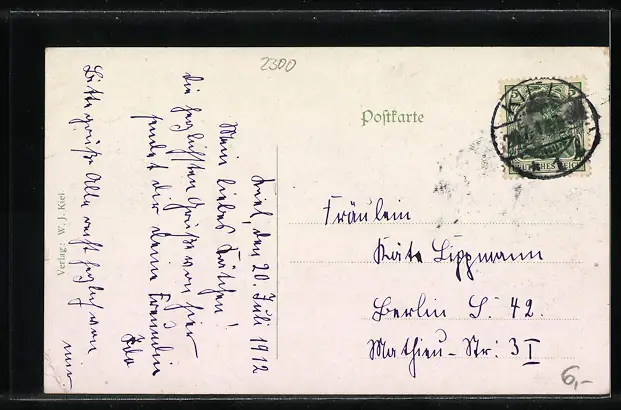 2300
Postkarte
KIEL
5 5
DEUTSCHES REICH
Kiel, den 20. Juli 1912
Mein liebes Kätchen!
Die herzlichsten Grüße von hier
sendet dir deine Freundin
Ida
Bitte grüße Alle recht herzlich von
mir
Fräulein
Käte Lippmann
Berlin S. 42.
Mathieu-Str: 3 I
Verlag: W. J. Kiel.
6,-